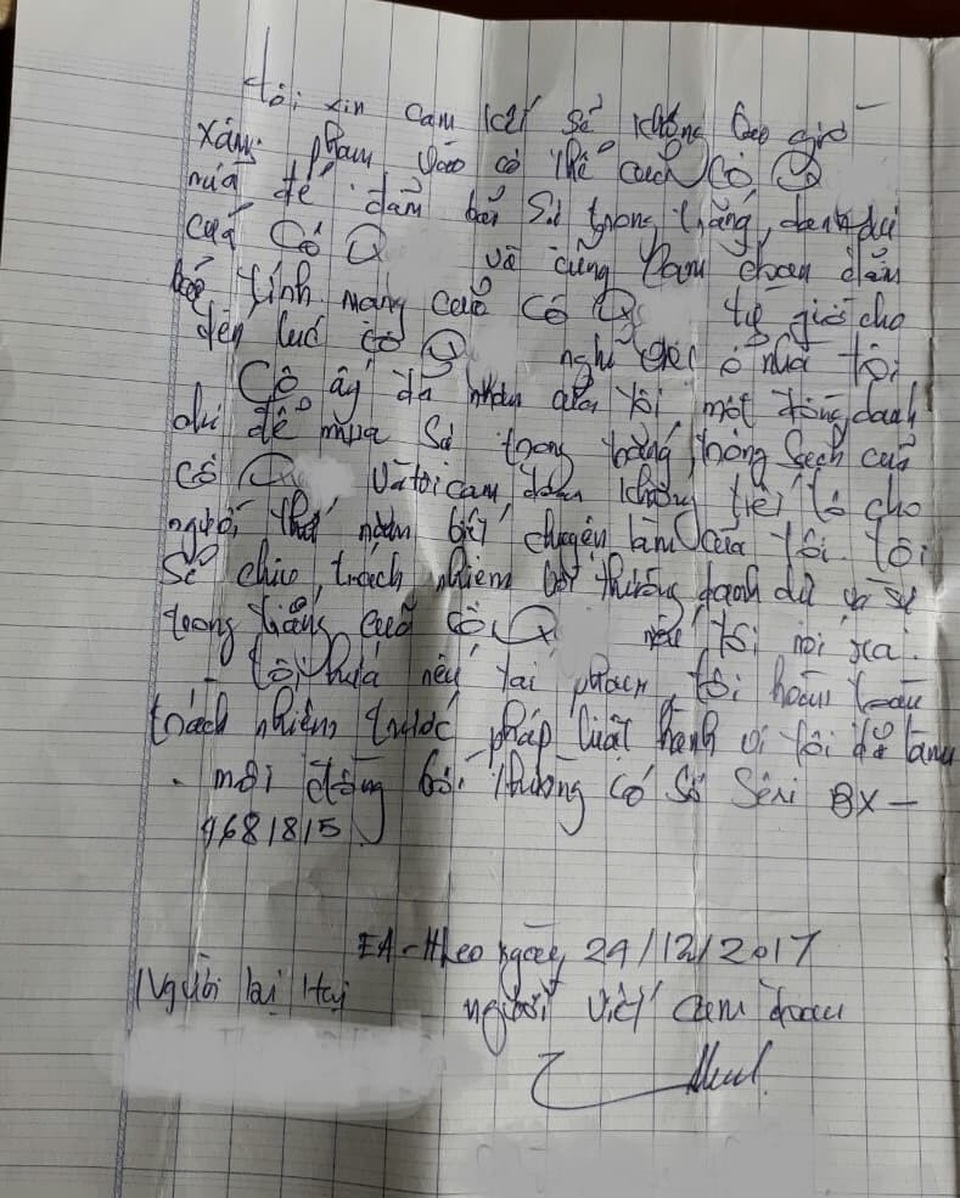 tôi xin cam kết sẽ không bao giờ
xâm phạm vào cơ thể của cô Q
nữa để đảm bảo sự trong trắng, danh dự
của Cô Q và cũng cam đoan đảm
bảo tính mạng của cô Q từ giờ cho
đến lúc cô Q nghỉ ở nhà tôi
Cô ấy đã nhận của tôi một đồng danh
dự để mua sự trong trắng trong sạch của
Cô Q Và tôi cam đoan không tiết lộ cho
người thứ năm biết chuyện làm của tôi. tôi
sẽ chịu trách nhiệm bồi thường danh dự và sự
trong trắng của cô Q nếu tôi nói ra.
- tôi hứa nếu tái phạm tôi hoàn toàn
trách nhiệm trước pháp luật hành vi tôi đã làm
. mỗi đồng bồi thường có Số Sêri BX -
9681815
EA - Hleo ngày, 24/12/2017
Người lại người viết cam đoan